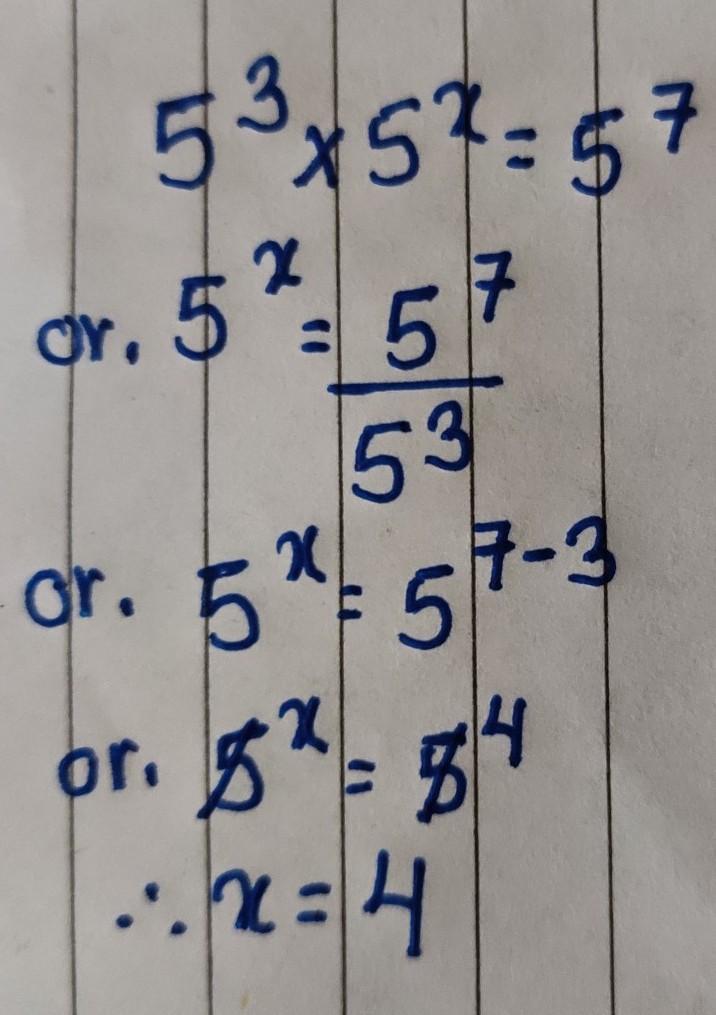 5³ × 5ˣ = 5⁷
or. 5ˣ = 5⁷/5³
or. 5ˣ = 5⁷⁻³
or. 5ˣ = 5⁴
∴ x = 4